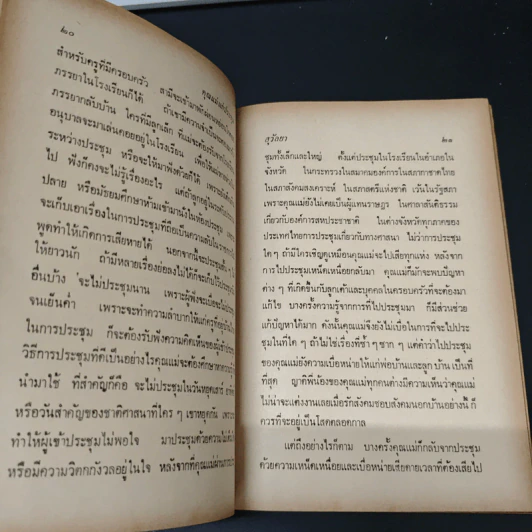 ๒๐
สำหรับครูที่มีครอบครัว สามีจะเข้ามา
ภรรยาในโรงเรียนก็ได้ ถ้าเขามีความจำเป็น
ภรรยากลับบ้าน ใครที่มีลูกเล็ก ที่แม่จะต้อง
อนุบาลจะมาเล่นคอยอยู่ในโรงเรียน เพื่อให้
ระหว่างประชุม หรือจะให้มาฟังด้วยก็ได้ เพราะ
ไป ฟังก็คงจะไม่รู้เรื่องอะไร แต่ถ้าลูกอยู่ใน
ปลาย หรือมัธยมศึกษาห้ามเข้ามานั่งในห้องประชุม
จะเก็บเอาเรื่องในการประชุมที่ถือเป็นความลับ
พูดทำให้เกิดการเสียหายได้ นอกจากนี้จะประชุม
ให้ยาวนัก ถ้ามีหลายเรื่องย่อลงไม่ได้ก็จะเก็บไว้ประชุม
อื่นบ้าง จะไม่ประชุมนาน เพราะผู้ฟังจะเบื่อ
จนเย็นค่ำ เพราะจะทำความลำบากให้แก่ครูที่อยู่บ้าน
ในการประชุม ก็จะต้องรับฟังความคิดเห็นของผู้เข้า
วิธีการประชุมที่ดีเป็นอย่างไรคุณแม่จะต้องศึกษาหาความรู้
นำมาใช้ ที่สำคัญก็คือ จะไม่ประชุมในวันหยุดเสาร์
หรือวันสำคัญของชาติศาสนาที่ใคร ๆ เขาหยุดกัน เพราะ
ทำให้ผู้เข้าประชุมไม่พอใจ มาประชุมด้วยความไม่
หรือมีความวิตกกังวลอยู่ในใจ หลังจากที่คุณแม่ผ่านการ
สุรัลยา ๒๑
ชุมทั้งเล็กและใหญ่ ตั้งแต่ประชุมในโรงเรียนในอำเภอใน
จังหวัด ในกระทรวงในสมาคมองค์การในสภากาชาดไทย
ในสภาสังคมสงเคราะห์ ในสภาสตรีแห่งชาติ เว้นในรัฐสภา
เพราะคุณแม่ยังไม่เคยเป็นผู้แทนราษฎร ในศาลาสันติธรรม
เกี่ยวกับองค์การสหประชาชาติ ในต่างจังหวัดทุกภาคของ
ประเทศไทยการประชุมเกี่ยวกับทางศาสนา ไม่ว่าการประชุม
ใด ๆ ถ้ามีใครเชิญดูเหมือนคุณแม่จะไปเสียทุกแห่ง หลังจาก
การไปประชุมเหน็ดเหนื่อยกลับมา คุณแม่ก็มักจะพบปัญหา
ต่าง ๆ ที่เกิดขึ้นกับลูกเต้าและบุคคลในครอบครัวที่จะต้องมา
แก้ไข บางครั้งความรู้จากการที่ไปประชุมมา ก็มีส่วนช่วย
แก้ปัญหาได้มาก ดังนั้นคุณแม่จึงยังไม่เบื่อในการที่จะไปประ
ชุมในที่ใด ๆ ถ้าไม่ใช่เรื่องที่ซ้ำ ๆ ซาก ๆ แต่คำว่าไปประชุม
ของคุณแม่ยังความเบื่อหน่ายให้แก่พ่อบ้านและลูกบ้าน เป็นที่
ที่สุด ญาติพี่น้องของคุณแม่ทุกคนต่างมีความเห็นว่าคุณแม่
ไม่น่าจะแต่งงานเลยเมื่อรักสังคมชอบสังคมนอกบ้านอย่างนี้ ก็
ควรที่จะอยู่เป็นโสดตลอดกาล
แต่ถึงอย่างไรก็ตาม บางครั้งคุณแม่ก็กลับจากประชุม
ด้วยความเหน็ดเหนื่อยและเบื่อหน่ายเสียดายเวลาที่ต้องเสียไป